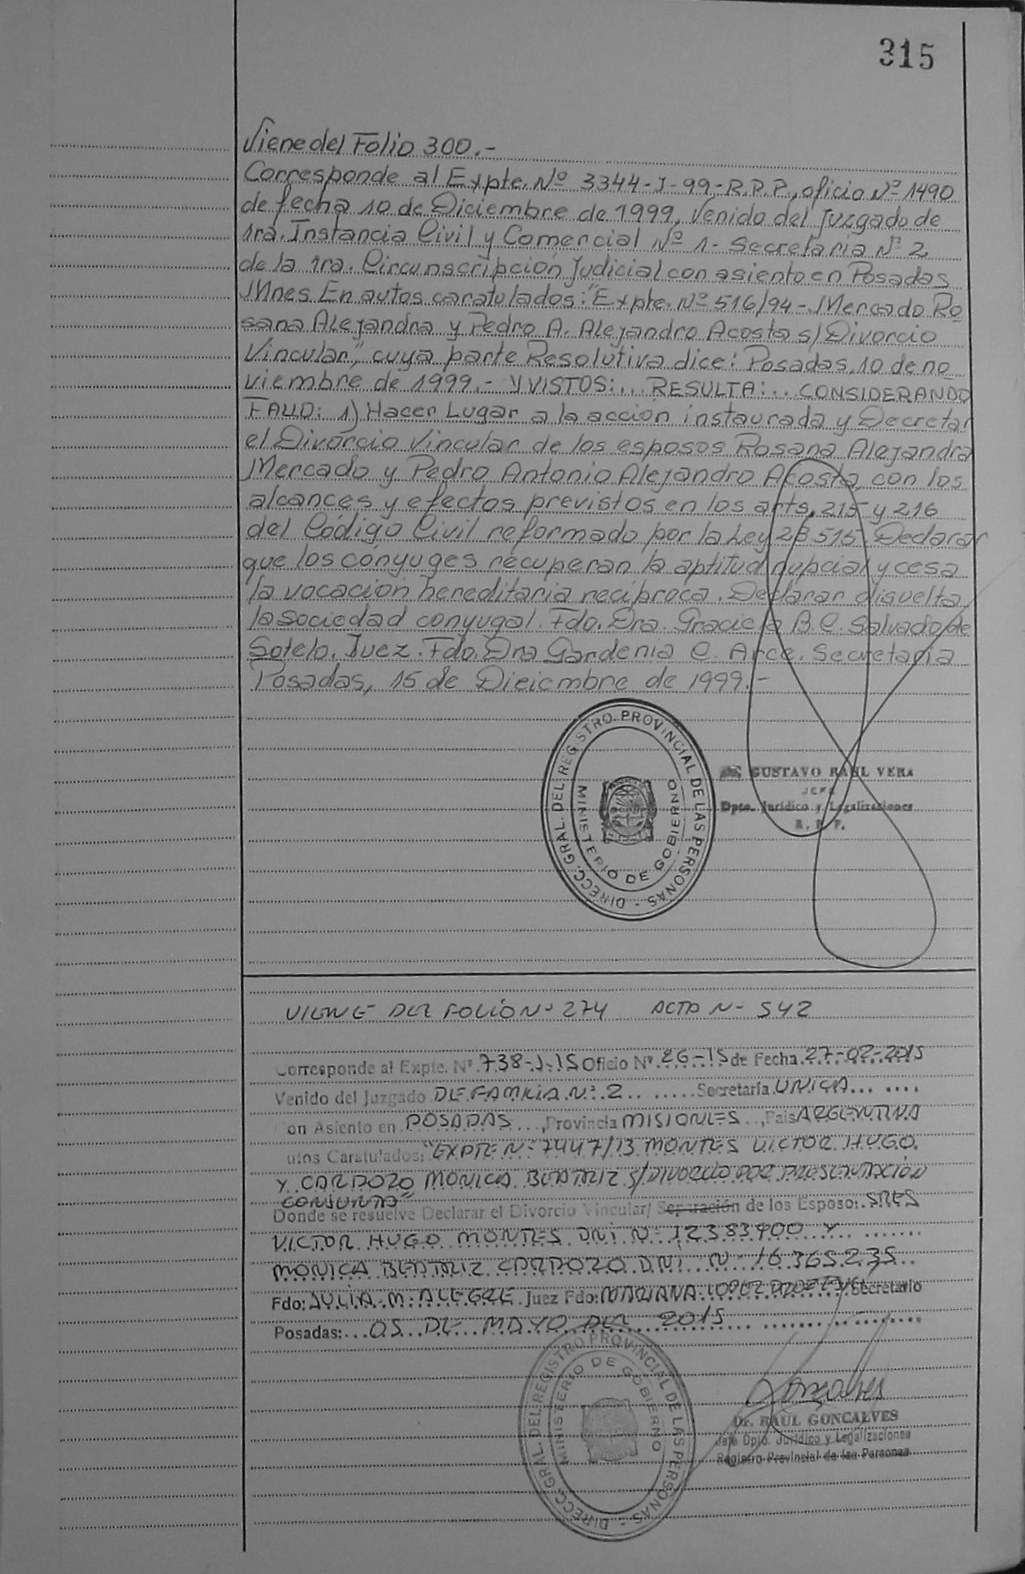 315
Viene del Folio 300.-
Corresponde al Expte. Nº 3344-J-99-R.P.P., oficio Nº 1490
de fecha 10 de Diciembre de 1999, Venido del Juzgado de
1ra. Instancia Civil y Comercial Nº 1- Secretaria Nº 2
de la 1ra. Circunscripción Judicial con asiento en Posadas
Mnes. En autos caratulados: "Expte. Nº 516/94-. Mercado Ro
sana Alejandra y Pedro A. Alejandro Acosta s/ Divorcio
Vincular", cuya parte Resolutiva dice: Posadas, 10 de no
viembre de 1999.- Y VISTOS:... RESULTA:... CONSIDERANDO
FALLO: 1) Hacer Lugar a la accion instaurada y Decretar
el Divorcio Vincular de los esposos Rosana Alejandra
Mercado y Pedro Antonio Alejandro Acosta, con los
alcances y efectos previstos en los arts. 215 y 216
del Codigo Civil reformado por la Ley 23.515. Declarar
que los cónyuges recuperan la aptitud nupcial y cesa
la vocación hereditaria reciproca. Declarar disuelta
la sociedad conyugal. Fdo. Dra. Graciela B.C. Salvado de
Sotelo. Juez. Fdo. Dra Gardenia C. Arce. Secretaria
Posadas, 15 de Dieicmbre de 1999.-
DIRECC. GRAL. DEL REGISTRO PROVINCIAL DE LAS PERSONAS -
MINISTERIO DE GOBIERNO
GUSTAVO RAUL VERA
JEFE
Dpto. Jurídico y Legalizaciones
R. P. P.
VIENE DEL FOLIO Nº 274 ACTA Nº 542
Corresponde al Expte. Nº 738-J-15 Oficio Nº 26-15 de Fecha 27-02-2015
Venido del Juzgado DE FAMILIA Nº 2 Secretaría UNICA
on Asiento en POSADAS, Provincia MISIONES, País ARGENTINA
utos Caratulados: "EXPTE Nº 7447/13 MONTES VICTOR HUGO
Y CARDOZO MONICA BEATRIZ S/DIVORCIO POR PRESENTACIÓN
CONJUNTA"
Donde se resuelve Declarar el Divorcio Vincular/ Separación de los Esposo: SRES
VICTOR HUGO MONTES DNI Nº 12383400 Y
MONICA BEATRIZ CARDOZO DNI Nº 16.365.235
Fdo: JULIA M. ALEGRE Juez Fdo: MARIANA LOPEZ Secretario
Posadas: 05 DE MAYO DEL 2015
DIRECC. GRAL. DEL REGISTRO PROVINCIAL DE LAS PERSONAS -
MINISTERIO DE GOBIERNO
Dr. RAUL GONCALVES
Jefe Dpto. Jurídico y Legalizaciones
Registro Provincial de las Personas